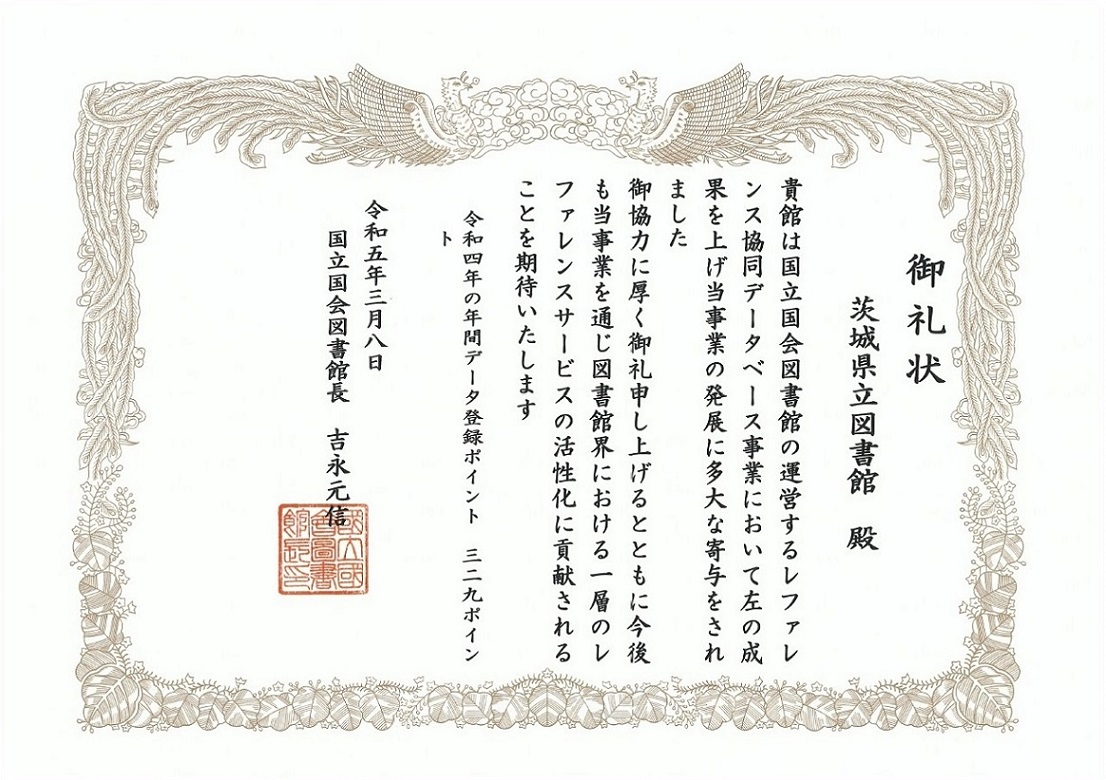 御礼状
茨城県立図書館　殿
貴館は国立国会図書館の運営するレファレ
ンス協同データベース事業において左の成
果を上げ当事業の発展に多大な寄与をされ
ました
御協力に厚く御礼申し上げるとともに今後
も当事業を通じ図書館界における一層のレ
ファレンスサービスの活性化に貢献される
ことを期待いたします
令和四年の年間データ登録ポイント　三二九ポイン
ト
令和五年三月八日
国立国会図書館長　吉永元信
國立國
會圖書
館長印